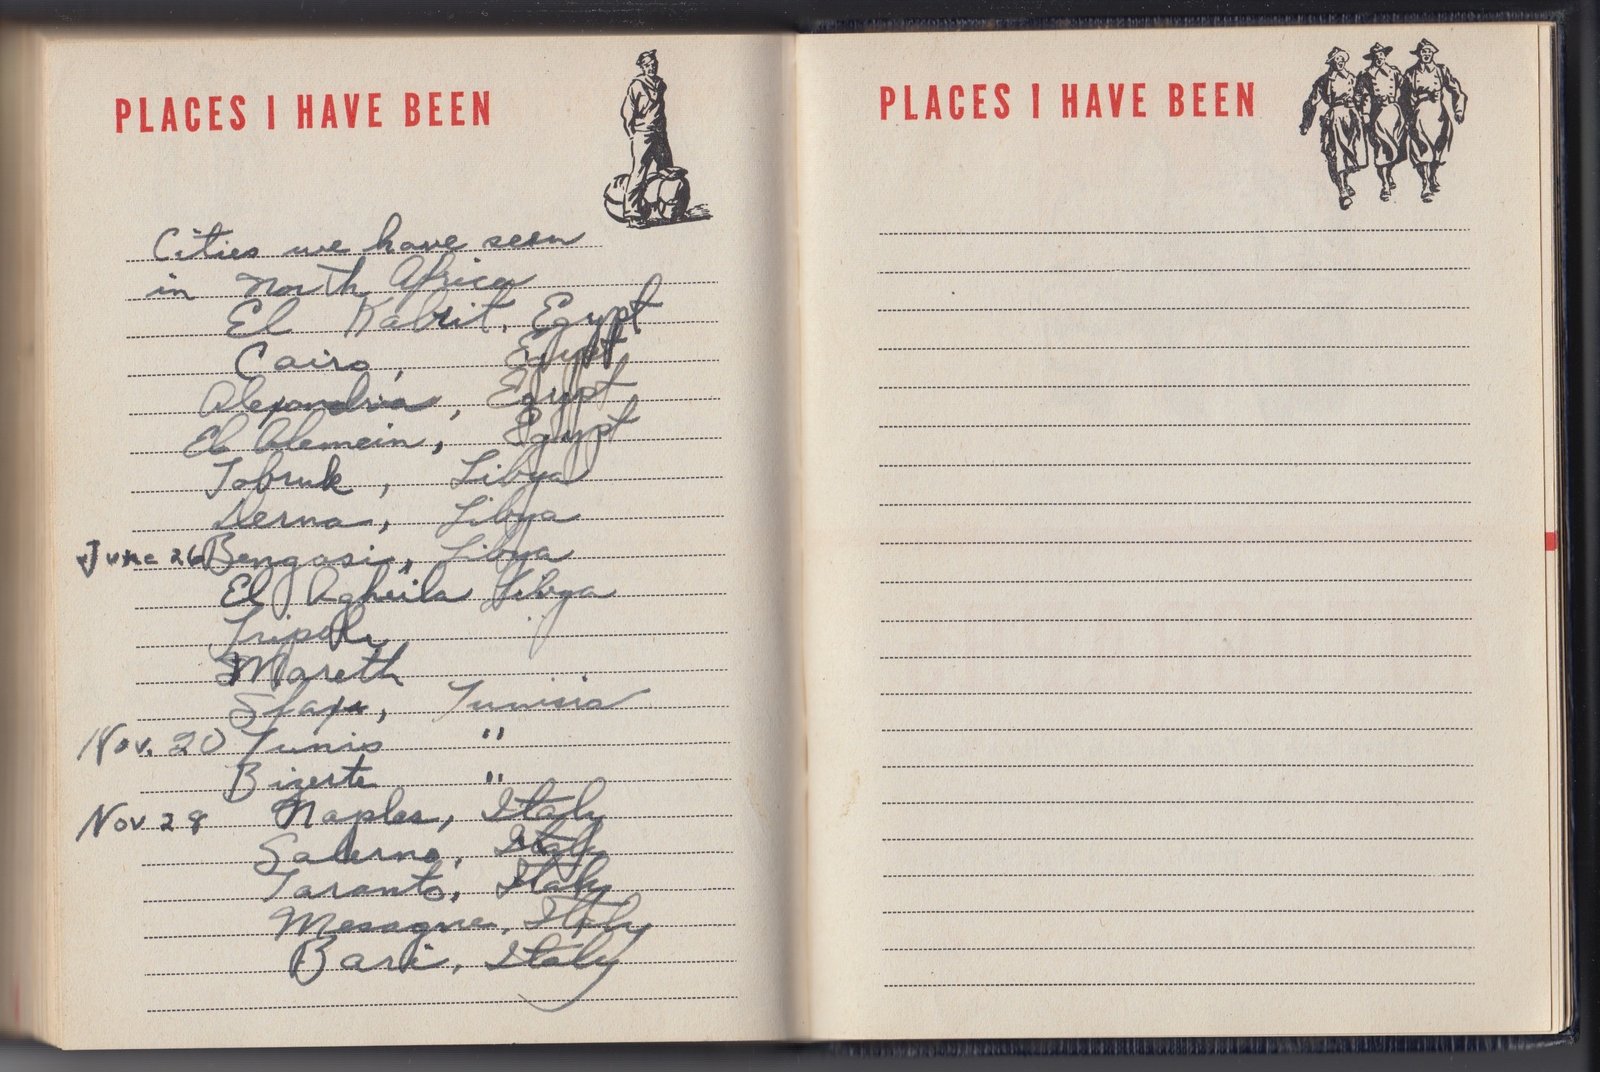 PLACES I HAVE BEEN
Cities we have seen
in North Africa
El Kabrit, Egypt
Cairo, Egypt
Alexandria, Egypt
El Alemein, Egypt
Tobruk, Libya
Derna, Libya
June 26 Bengasi, Libya
El Agheila Libya
Tripoli
Mareth
Sfax, Tunisia
Nov. 20 Tunis "
Bizerte "
Nov 28 Naples, Italy
Salerno, Italy
Taranto, Italy
Mesagne, Italy
Bari, Italy
PLACES I HAVE BEEN